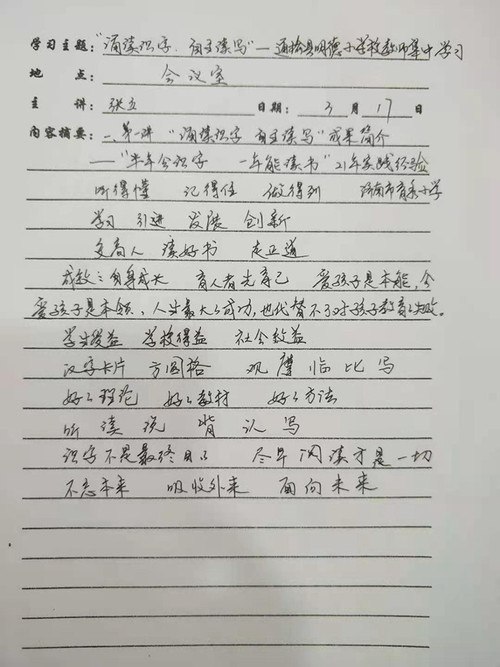 学习主题:"诵读识字、自主读写"—通榆县明德小学校教师集中学习
地 点: 会议室
主 讲: 张立 日期: 3 月 17 日
内容摘要: 一、第一讲 "诵读识字 自主读写"成果简介
——"半年会识字 一年能读书"21年实践经验
听得懂 记得住 做得到 济南市育秀小学
学习 引进 发展 创新
交高人 读好书 走正道
成效:自身成长 育人者先育己 爱孩子是本能,会
爱孩子是本领、人生最大的成功,也代替不了对孩子教育的失败。
学生受益 学校得益 社会效益
汉字卡片 方圆格 观 摩 临 比 写
好的理论 好的教材 好的方法
听 读 说 背 认 写
识字不是最终目的 尽早阅读才是一切
不忘本来 吸收外来 面向未来